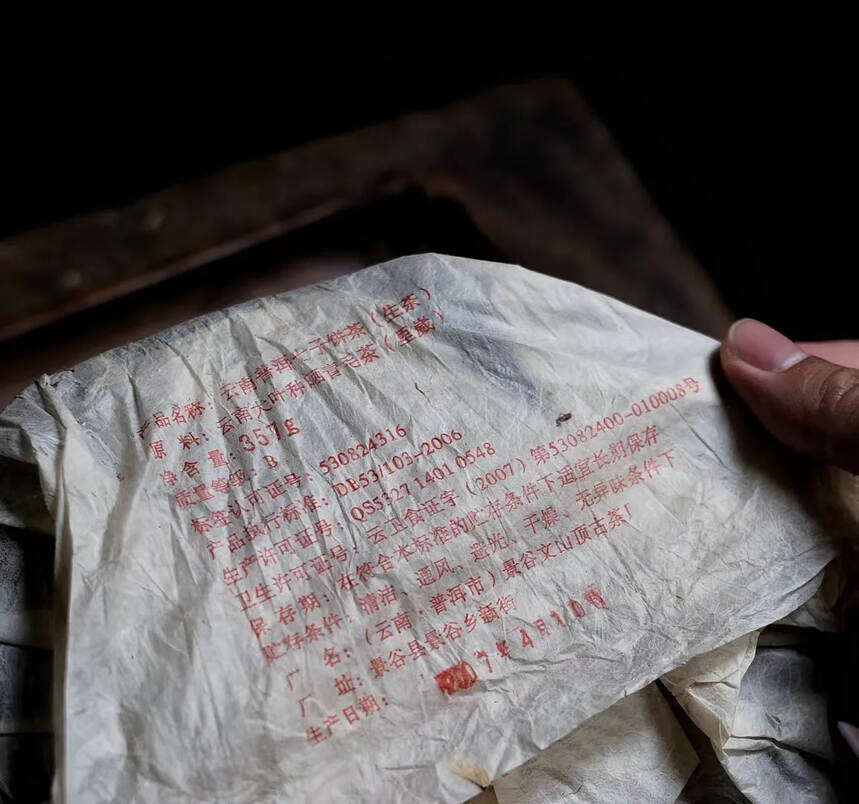 产品名称：云南普洱七子饼茶（生茶）
原　料：云南大叶种晒青毛茶（里崴）
净含量：357g
质量等级：B
标签认可证号：530824316
产品执行标准：DB53/103-2006
生产许可证号：QS5327 1401 0548
卫生许可证号：云卫食证字（2007）第53082400-010008号
保存期：在符合本标准的贮存条件下适宜长期保存
贮存条件：清洁、通风、避光、干燥、无异味条件下
厂　名：（云南．普洱市）景谷文山顶古茶厂
厂　址：景谷县景谷乡新街
生产日期：2007年4月10日